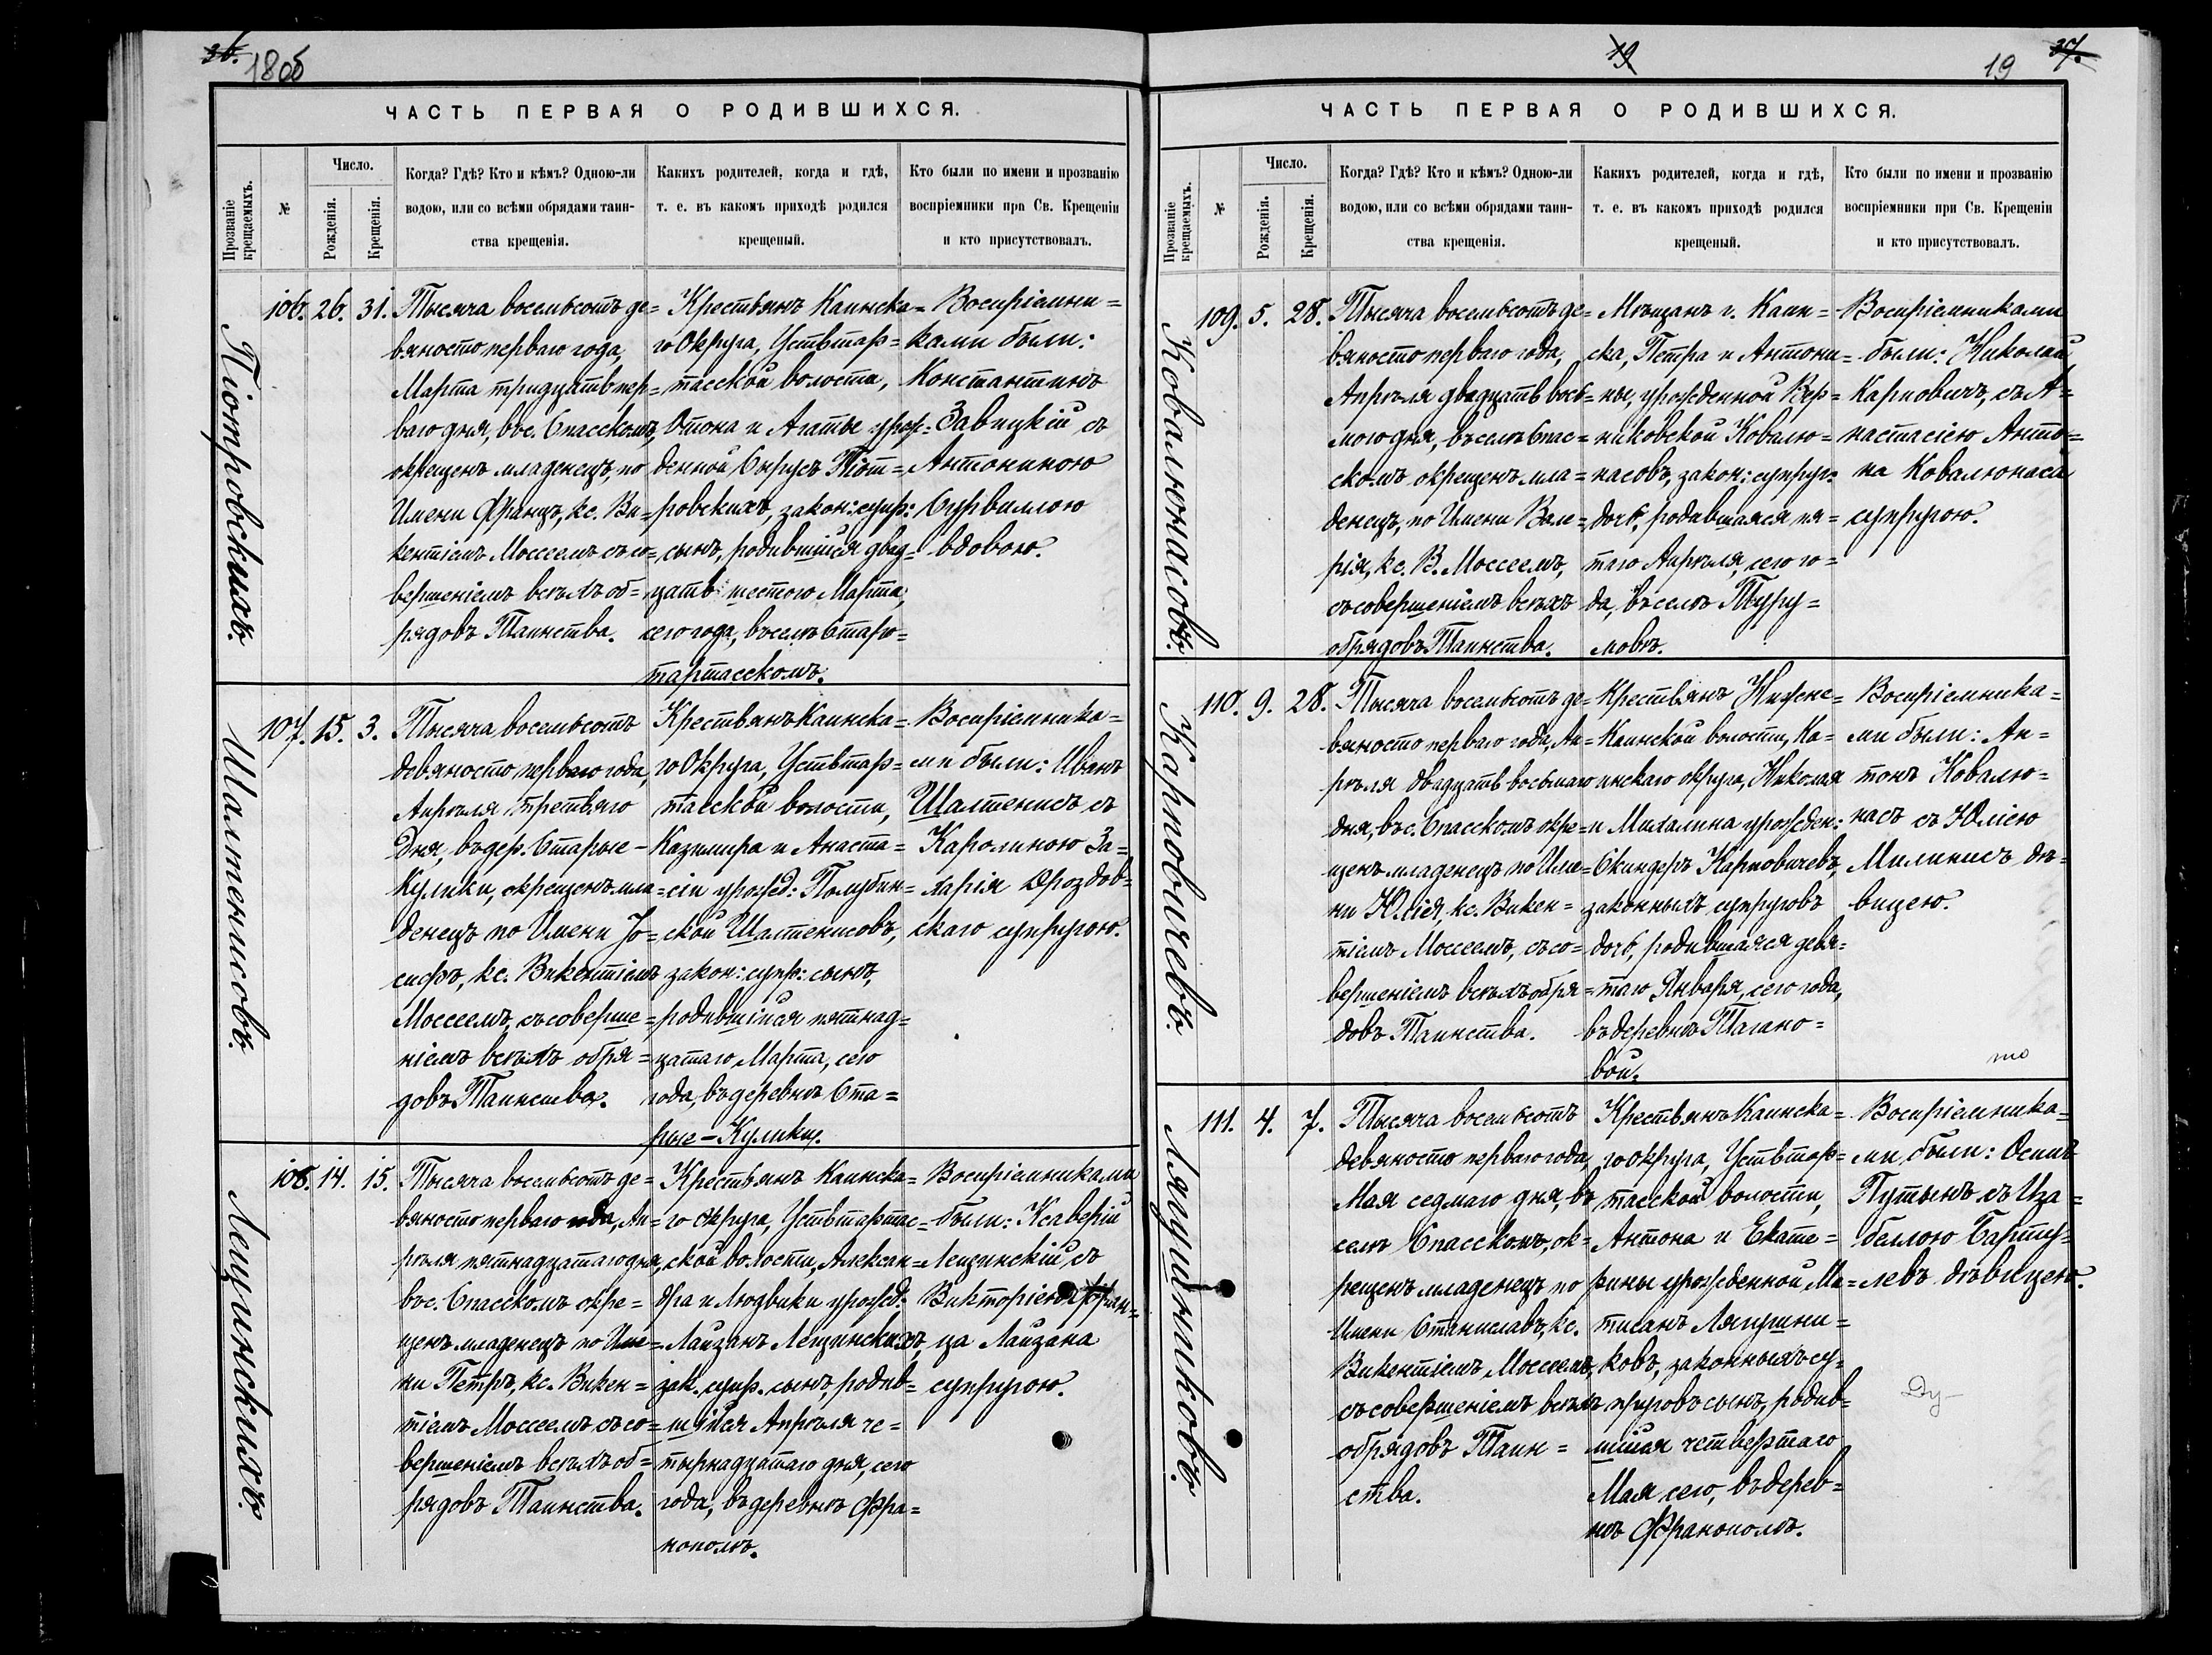 36.
18об
ЧАСТЬ ПЕРВАЯ О РОДИВШИХСЯ.
Прозваніе крещаемыхъ.
№
Число.
Рожденія.
Крещенія.
Когда? Гдѣ? Кто и кѣмъ? Одною-ли
водою, или со всѣми обрядами таин-
ства крещенія.
Каких​ъ родителей, когда и гдѣ,
т. е. въ какомъ приходѣ родился
крещеный.
Кто были по имени и прозванію
воспріемники при Св. Крещеніи
и кто присутствовалъ.
Піотровскихъ.
106. 26. 31.
Тысяча восемьсотъ де=
вяносто перваго года,
Марта тридцать пер=
ваго дня, въ с. Спасскомъ,
окрещенъ младенецъ, по
Имени Францъ, кс. Ви=
кентіемъ Моссеемъ съ со=
вершеніемъ всѣхъ об=
рядовъ Таинства.
Крестьянъ Каинска=
го Округа, Устьтар=
тасской волости,
Отона и Агаты урож=
денной Сырусъ Піот=
ровскихъ, закон: супр:
сынъ, родившійся двад=
цать шестого Марта,
сего года, въ селѣ Старо=
тартасскомъ.
Воспріемни=
ками были:
Константинъ
Завицкій, съ
Антониною
Сурвиллою
вдовою.
Шалтенисовъ.
107. 15. 3.
Тысяча восемьсотъ
девяносто перваго года,
Апрѣля третьяго
дня, въ дер. Старые-
Кулики, окрещенъ мла=
денецъ по Имени Іо=
сифъ, кс. Викентіемъ
Моссеемъ, съ соверше=
ніемъ всѣхъ обря=
довъ Таинства.
Крестьянъ Каинска=
го Округа, Устьтар=
тасской волости,
Казимира и Анаста=
сіи урожд: Голубин=
ской Шалтенисовъ,
закон: супр: сынъ,
родившійся пятнад=
цатаго Марта, сего
года, въ деревнѣ Ста=
рые-Кулики.
Воспріемника=
ми были: Иванъ
Шалтенисъ съ
Каролиною За=
харія Дроздов=
скаго супругою.
Лещинскихъ.
108. 14. 15.
Тысяча восемьсотъ де=
вяносто перваго года, Ап=
рѣля пятнадцатаго дня,
въ с. Спасскомъ окре=
щенъ младенецъ по Име=
ни Петръ, кс. Викен=
тіемъ Моссеемъ съ со=
вершеніемъ всѣхъ об=
рядовъ Таинства.
Крестьянъ Каинска=
го округа, Устьтартас=
ской волости, Алексан=
дра и Людвики урожд:
Лайзанъ Лещинскихъ,
зак. супр. сынъ, родив=
шійся Апрѣля че=
тырнадцатаго дня, сего
года, въ деревнѣ Фра=
нополѣ.
Воспріемниками
были: Ксаверій
Лещинскій, съ
Викторіею Фран=
ца Лайзана
супругою.
19
19
37.
ЧАСТЬ ПЕРВАЯ О РОДИВШИХСЯ.
Прозваніе крещаемыхъ.
№
Число.
Рожденія.
Крещенія.
Когда? Гдѣ? Кто и кѣмъ? Одною-ли
водою, или со всѣми обрядами таин-
ства крещенія.
Какихъ родителей, когда и гдѣ,
т. е. въ какомъ приходѣ родился
крещеный.
Кто были по имени и прозванію
воспріемники при Св. Крещеніи
и кто присутствовалъ.
Ковалюнасовъ.
109. 5. 28.
Тысяча восемьсотъ де=
вяносто перваго года,
Апрѣля двадцать вось=
мого дня, въ селѣ Спас=
скомъ окрещенъ мла=
денецъ, по Имени Вале=
рія, кс. В. Моссеемъ,
съ совершеніемъ всѣхъ
обрядовъ Таинства.
Мѣщанъ г. Каин=
ска, Петра и Антони=
ны, урожденной Вер=
никовской Ковалю=
насовъ, закон: супруг:
дочь, родившаяся пя=
таго Апрѣля, сего го=
да, въ селѣ Туру=
мовѣ.
Воспріемниками
были: Николай
Карповичъ, съ А=
настасіею Анто=
на Ковалюнаса
супругою.
Карповичевъ.
110. 9. 28.
Тысяча восемьсотъ де=
вяносто перваго года, Ап=
рѣля двадцать восьмаго
дня, въ с. Спасскомъ окре=
щенъ младенецъ по Име=
ни Юлія, кс. Викен=
тіемъ Моссеемъ, съ со=
вершеніемъ всѣхъ обря=
довъ Таинства.
Крестьянъ Нижне=
Каинской волости, Ка=
инскаго округа, Николая
и Михалина урожден:
Скиндеръ Карповичевъ,
законныхъ супруговъ
дочь, родившаяся девя=
таго Января, сего года,
въ деревнѣ Тагано=
вой.
Воспріемника=
ми были: Ан=
тонъ Ковалю=
насъ съ Юліею
Милинисъ дѣ=
вицею.
то
Лягушниковъ.
111. 4. 7.
Тысяча восемьсотъ
девяносто перваго года,
Мая седмаго дня, въ
селѣ Спасскомъ, ок=
рещенъ младенецъ по
Имени Станиславъ, кс.
Викентіемъ Моссеемъ,
съ совершеніемъ всѣхъ
обрядовъ Таин=
ства.
Крестьянъ Каинска=
го округа, Устьтар=
тасской волости,
Антона и Екате=
рины урожденной Ма=
тисанъ Лягушни=
ковъ, законныхъ су=
пруговъ сынъ, родив=
шійся четвертаго
Мая сего, въ дерев=
нѣ Франополѣ.
Воспріемника=
ми были: Осипъ
Путынъ съ Иза=
беллою Барту=
левъ дѣвицею.
Ду-